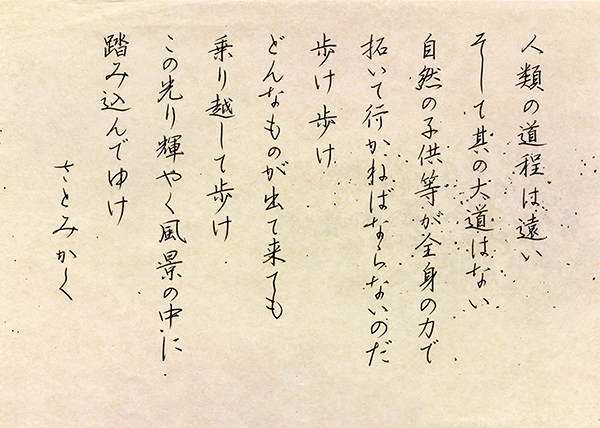 人類の道程は遠い
そして其の大道はない
自然の子供等が全身の力で
拓いて行かねばならないのだ
歩け歩け
どんなものが出て来ても
乗り越して歩け
この光り輝やく風景の中に
踏み込んでゆけ
さとみかく